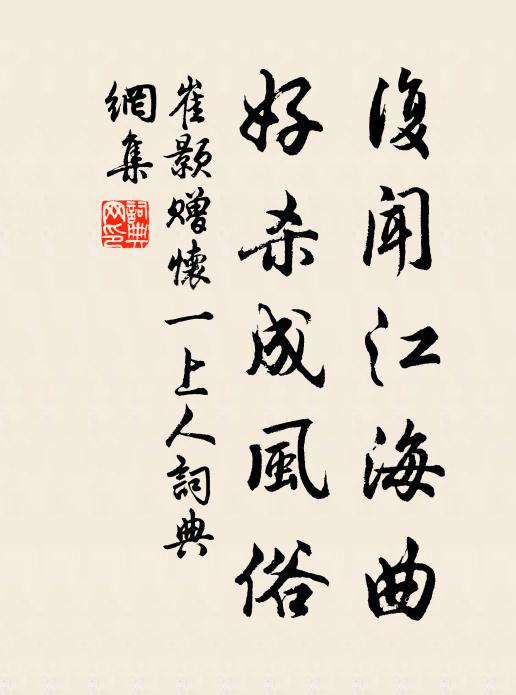 復聞江海曲
好杀成風俗
崔颢贈懷一上人詞典
網集
詞典
网印